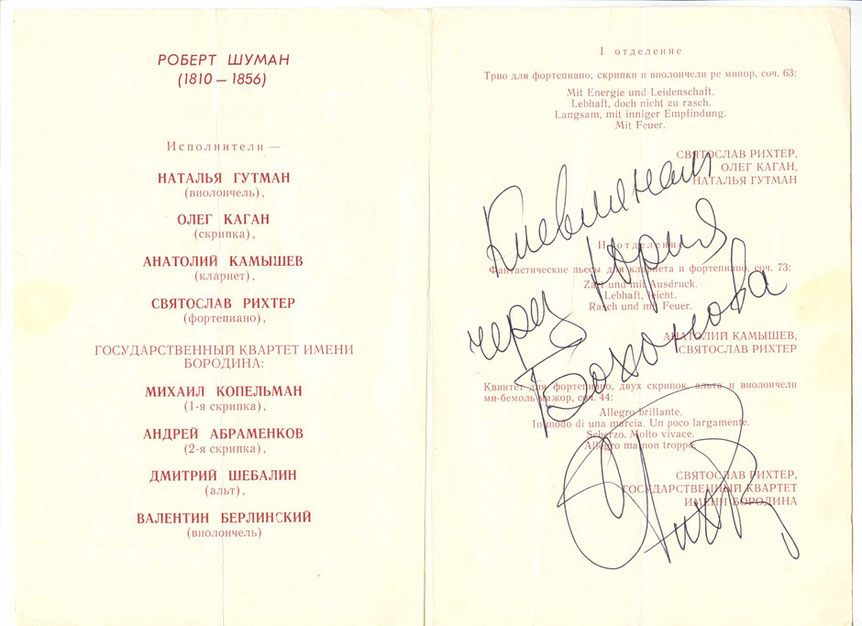 РОБЕРТ ШУМАН
(1810 — 1856)
Исполнители —
НАТАЛЬЯ ГУТМАН
(виолончель),
ОЛЕГ КАГАН
(скрипка),
АНАТОЛИЙ КАМЫШЕВ
(кларнет),
СВЯТОСЛАВ РИХТЕР
(фортепиано),
ГОСУДАРСТВЕННЫЙ КВАРТЕТ ИМЕНИ
БОРОДИНА:
МИХАИЛ КОПЕЛЬМАН
(1-я скрипка),
АНДРЕЙ АБРАМЕНКОВ
(2-я скрипка),
ДМИТРИЙ ШЕБАЛИН
(альт),
ВАЛЕНТИН БЕРЛИНСКИЙ
(виолончель)
I отделение
Трио для фортепиано, скрипки и виолончели ре минор, соч. 63:
Mit Energie und Leidenschaft.
Lebhaft, doch nicht zu rasch.
Langsam, mit inniger Empfindung.
Mit Feuer.
СВЯТОСЛАВ РИХТЕР,
ОЛЕГ КАГАН,
НАТАЛЬЯ ГУТМАН
II отделение
Фантастические пьесы для кларнета и фортепиано, соч. 73:
Zart und mit Ausdruck.
Lebhaft, leicht.
Rasch und mit Feuer.
АНАТОЛИЙ КАМЫШЕВ,
СВЯТОСЛАВ РИХТЕР
Квинтет для фортепиано, двух скрипок, альта и виолончели
ми-бемоль мажор, соч. 44:
Allegro brillante.
In modo di una marcia. Un poco largamente.
Scherzo. Molto vivace.
Allegro ma non troppo.
СВЯТОСЛАВ РИХТЕР,
ГОСУДАРСТВЕННЫЙ КВАРТЕТ
ИМЕНИ БОРОДИНА
Киевлянам
через Юрия
Бохонова